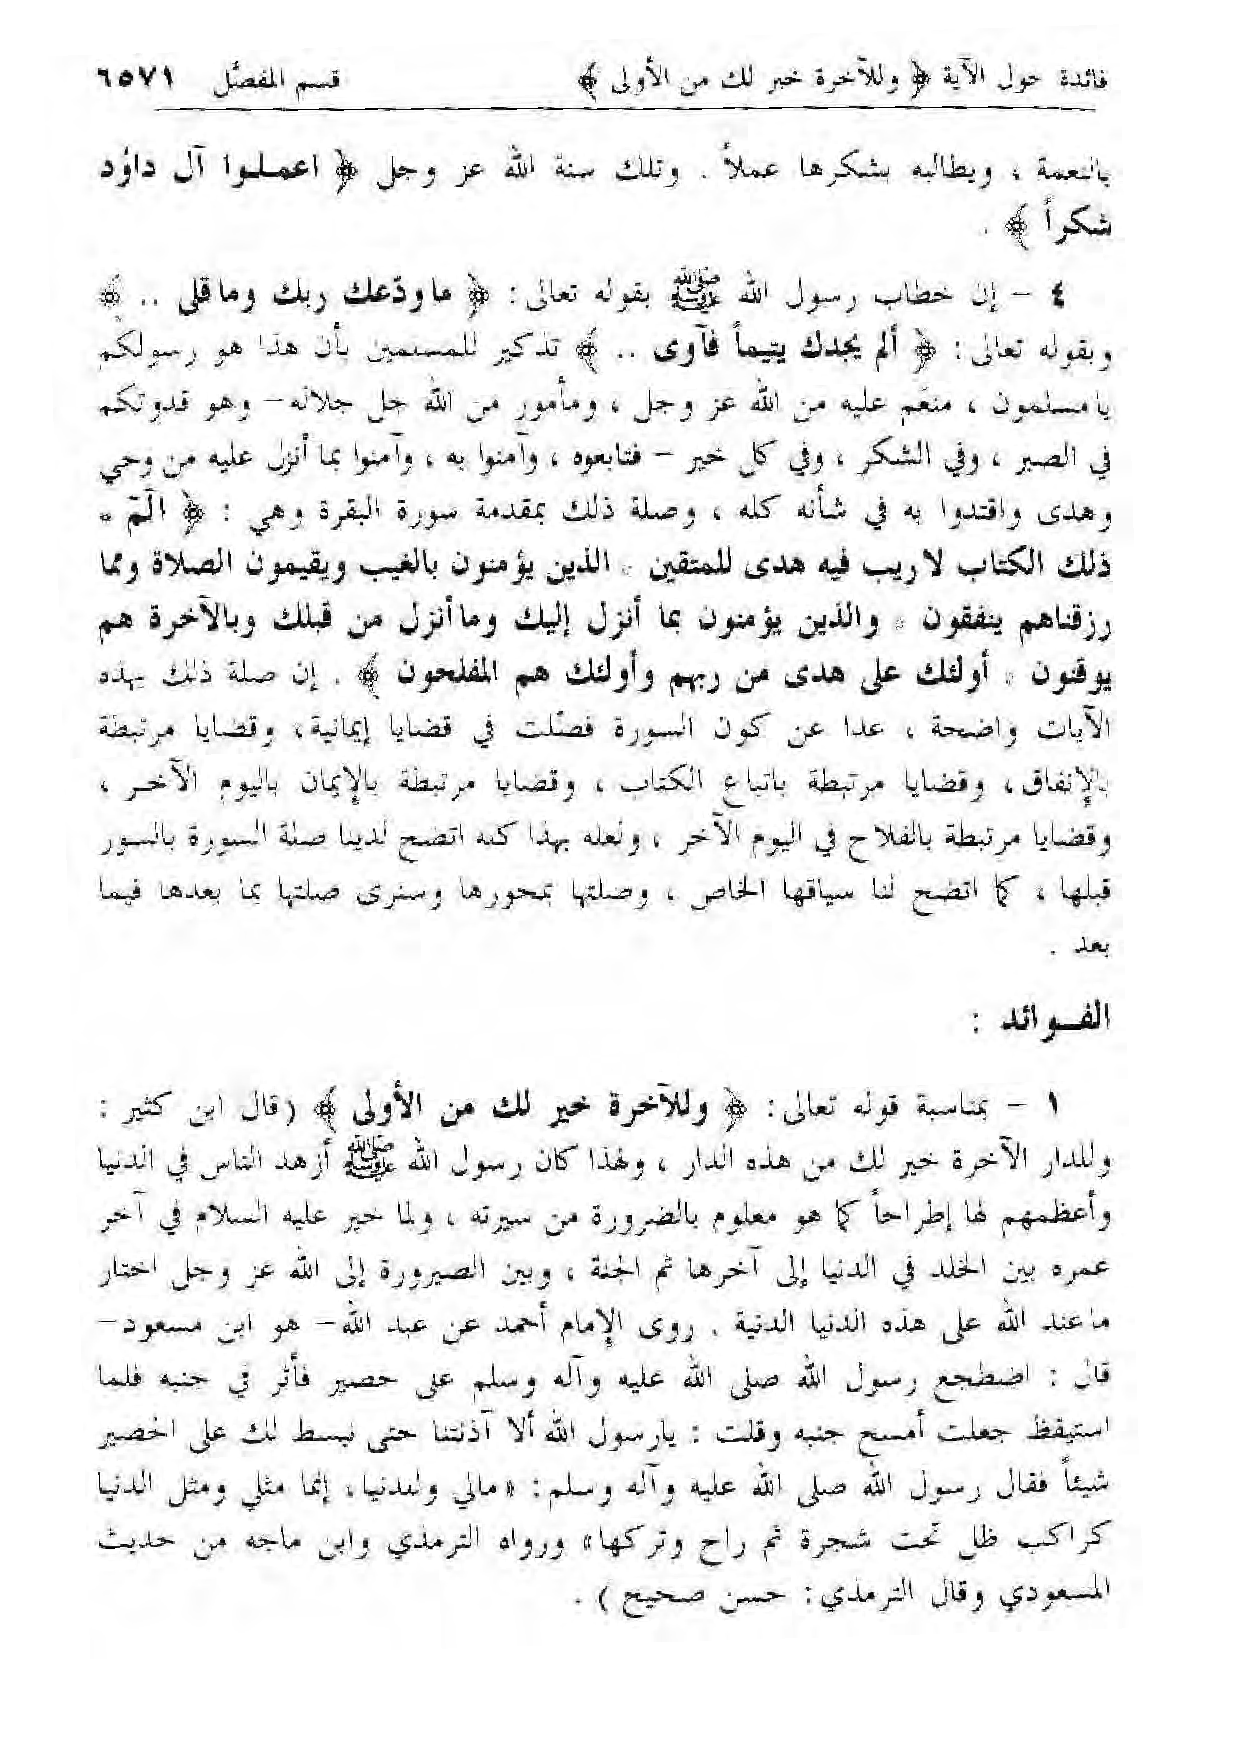 فائدة حول الآية ﴿ وللآخرة خير لك من الأولى ﴾ قسم المفصَّل ٦٥٧١
بالنعمة ، ويطالبه بشكرها عملاً . وتلك سنة الله عز وجل ﴿ اعملوا آل داوُد
شكراً ﴾ .
٤ - إن خطاب رسول الله ﷺ بقوله تعالى : ﴿ ما ودّعك ربك وما قلى .. ﴾
وبقوله تعالى : ﴿ ألم يجدك يتيماً فآوى .. ﴾ تذكير للمسلمين بأن هذا هو رسولكم
يا مسلمون ، منعَم عليه من الله عز وجل ، ومأمور من الله جل جلاله - وهو قدوتكم
في الصبر ، وفي الشكر ، وفي كل خير - فتابعوه ، وآمنوا به ، وآمنوا بما أنزل عليه من وحي
وهدى واقتدوا به في شأنه كله ، وصلة ذلك بمقدمة سورة البقرة وهي : ﴿ الٓمٓ *
ذلك الكتاب لا ريب فيه هدى للمتقين * الذين يؤمنون بالغيب ويقيمون الصلاة ومما
رزقناهم ينفقون * والذين يؤمنون بما أنزل إليك وما أنزل من قبلك وبالآخرة هم
يوقنون * أولئك على هدى من ربهم وأولئك هم المفلحون ﴾ . إن صلة ذلك بهذه
الآيات واضحة ، عدا عن كون السورة فصّلت في قضايا إيمانية ، وقضايا مرتبطة
بالإنفاق ، وقضايا مرتبطة باتباع الكتاب ، وقضايا مرتبطة بالإيمان باليوم الآخر ،
وقضايا مرتبطة بالفلاح في اليوم الآخر ، ولعله بهذا كله اتضح لدينا صلة السورة بالسور
قبلها ، كما اتضح لنا سياقها الخاص ، وصلتها بمحورها وسنرى صلتها بما بعدها فيما
بعد .
الفوائد :
١ - بمناسبة قوله تعالى : ﴿ وللآخرة خير لك من الأولى ﴾ ( قال ابن كثير :
وللدار الآخرة خير لك من هذه الدار ، ولهذا كان رسول الله ﷺ أزهد الناس في الدنيا
وأعظمهم لها إطراحاً كما هو معلوم بالضرورة من سيرته ، ولما خير عليه السلام في آخر
عمره بين الخلد في الدنيا إلى آخرها ثم الجنة ، وبين الصيرورة إلى الله عز وجل اختار
ما عند الله على هذه الدنيا الدنية . روى الإمام أحمد عن عبد الله - هو ابن مسعود -
قال : اضطجع رسول الله صلى الله عليه وآله وسلم على حصير فأثر في جنبه فلما
استيقظ جعلت أمسح جنبه وقلت : يا رسول الله ألا آذنتنا حتى نبسط لك على الحصير
شيئاً فقال رسول الله صلى الله عليه وآله وسلم : « مالي وللدنيا ، إنما مثلي ومثل الدنيا
كراكب ظل تحت شجرة ثم راح وتركها » ورواه الترمذي وابن ماجه من حديث
المسعودي وقال الترمذي : حسن صحيح ) .